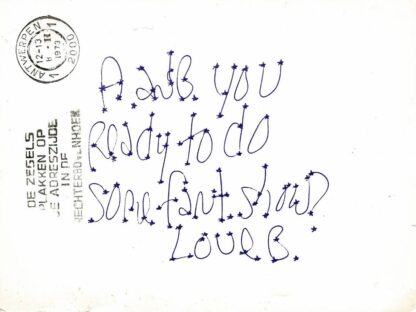 ANTWERPEN 1
12-13
8 - II
1973
1 2000
DE ZEGELS
PLAKKEN OP
DE ADRESZIJDE
IN DE
RECHTERBOVENHOEK
A. and B. you
ready to do
some fant. show?
Love B.